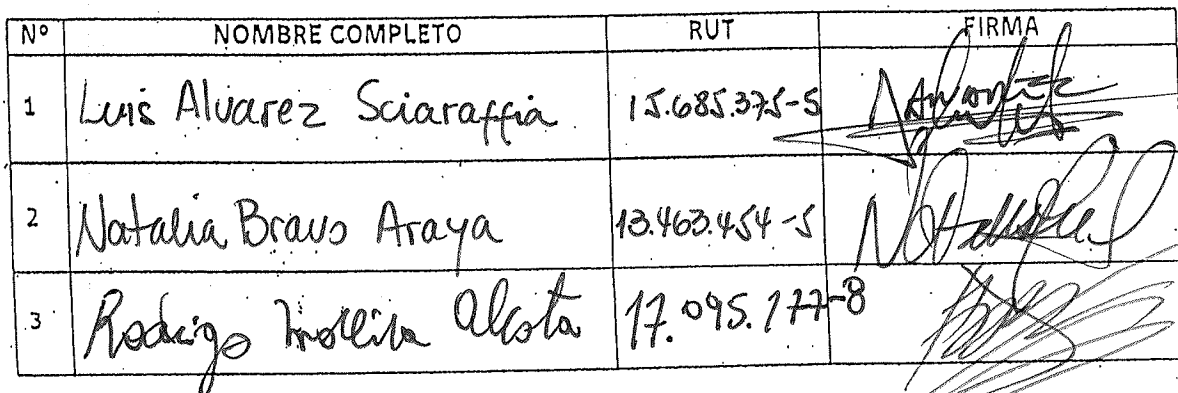 Nº NOMBRE COMPLETO RUT FIRMA
1 Luis Alvarez Sciaraffia 15.685.375-5
2 Natalia Bravo Araya 13.463.454-5
3 Rodrigo 17.095.177-8